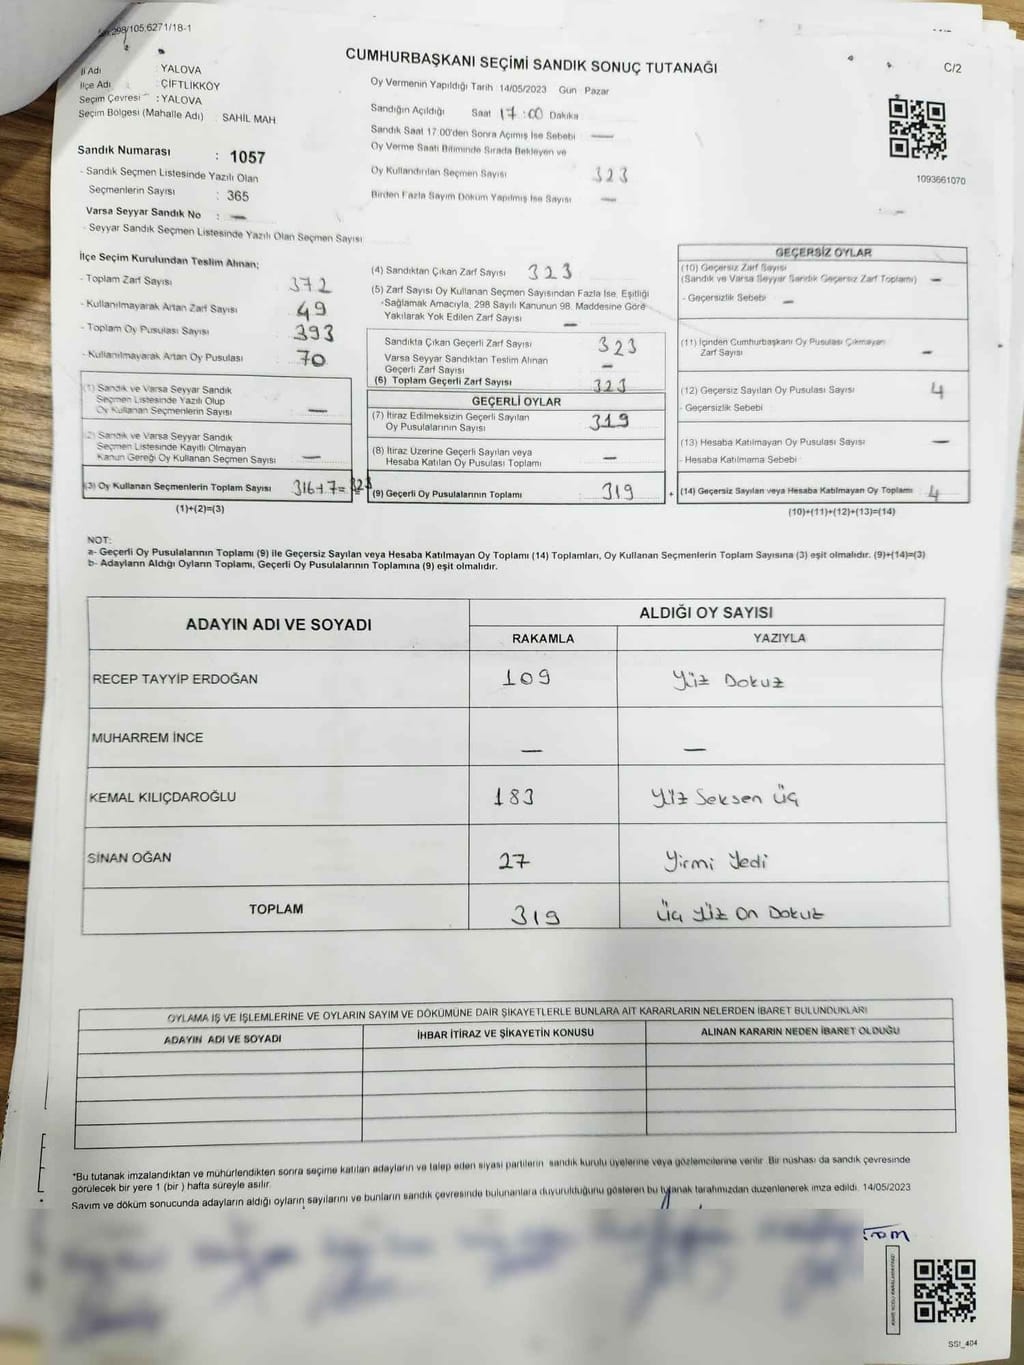 298/105,6271/18-1
CUMHURBAŞKANI SEÇİMİ SANDIK SONUÇ TUTANAĞI
C/2
İl Adı : YALOVA
İlçe Adı : ÇİFTLİKKÖY
Seçim Çevresi : YALOVA
Seçim Bölgesi (Mahalle Adı) : SAHİL MAH.
Oy Vermenin Yapıldığı Tarih 14/05/2023 Gün Pazar
Sandığın Açıldığı Saat 17:00 Dakika
Sandık Saat 17:00'den Sonra Açımış İse Sebebi —
Oy Verme Saati Bitiminde Sırada Bekleyen ve
Oy Kullandırılan Seçmen Sayısı 323
Birden Fazla Sayım Döküm Yapılmış İse Sayısı —
1093661070
Sandık Numarası : 1057
- Sandık Seçmen Listesinde Yazılı Olan
Seçmenlerin Sayısı : 365
Varsa Seyyar Sandık No : —
- Seyyar Sandık Seçmen Listesinde Yazılı Olan Seçmen Sayısı
İlçe Seçim Kurulundan Teslim Alınan;
- Toplam Zarf Sayısı 372
- Kullanılmayarak Artan Zarf Sayısı 49
- Toplam Oy Pusulası Sayısı 393
- Kullanılmayarak Artan Oy Pusulası 70
(1) Sandık ve Varsa Seyyar Sandık
Seçmen Listesinde Yazılı Olup
Oy Kullanan Seçmenlerin Sayısı —
(2) Sandık ve Varsa Seyyar Sandık
Seçmen Listesinde Kayıtlı Olmayan
Kanun Gereği Oy Kullanan Seçmen Sayısı —
(3) Oy Kullanan Seçmenlerin Toplam Sayısı 316+7=323
(1)+(2)=(3)
(4) Sandıktan Çıkan Zarf Sayısı 323
(5) Zarf Sayısı Oy Kullanan Seçmen Sayısından Fazla İse, Eşitliği
-Sağlamak Amacıyla, 298 Sayılı Kanunun 98. Maddesine Göre
Yakılarak Yok Edilen Zarf Sayısı —
Sandıkta Çıkan Geçerli Zarf Sayısı 323
Varsa Seyyar Sandıktan Teslim Alınan
Geçerli Zarf Sayısı —
(6) Toplam Geçerli Zarf Sayısı 323
GEÇERLİ OYLAR
(7) İtiraz Edilmeksizin Geçerli Sayılan
Oy Pusulalarının Sayısı 319
(8) İtiraz Üzerine Geçerli Sayılan veya
Hesaba Katılan Oy Pusulası Toplamı —
(9) Geçerli Oy Pusulalarının Toplamı 319 +
GEÇERSİZ OYLAR
(10) Geçersiz Zarf Sayısı
(Sandık ve Varsa Seyyar Sandık Geçersiz Zarf Toplamı) —
- Geçersizlik Sebebi —
(11) İçinden Cumhurbaşkanı Oy Pusulası Çıkmayan
Zarf Sayısı —
(12) Geçersiz Sayılan Oy Pusulası Sayısı 4
- Geçersizlik Sebebi
(13) Hesaba Katılmayan Oy Pusulası Sayısı —
- Hesaba Katılmama Sebebi
(14) Geçersiz Sayılan veya Hesaba Katılmayan Oy Toplamı 4
(10)+(11)+(12)+(13)=(14)
NOT:
a- Geçerli Oy Pusulalarının Toplamı (9) ile Geçersiz Sayılan veya Hesaba Katılmayan Oy Toplamı (14) Toplamları, Oy Kullanan Seçmenlerin Toplam Sayısına (3) eşit olmalıdır. (9)+(14)=(3)
b- Adayların Aldığı Oyların Toplamı, Geçerli Oy Pusulalarının Toplamına (9) eşit olmalıdır.
ADAYIN ADI VE SOYADI ALDIĞI OY SAYISI
RAKAMLA YAZIYLA
RECEP TAYYİP ERDOĞAN 109 Yüz Dokuz
MUHARREM İNCE — —
KEMAL KILIÇDAROĞLU 183 Yüz Seksen Üç
SİNAN OĞAN 27 Yirmi Yedi
TOPLAM 319 Üç Yüz On Dokuz
OYLAMA İŞ VE İŞLEMLERİNE VE OYLARIN SAYIM VE DÖKÜMÜNE DAİR ŞİKAYETLERLE BUNLARA AİT KARARLARIN NELERDEN İBARET BULUNDUKLARI
ADAYIN ADI VE SOYADI İHBAR İTİRAZ VE ŞİKAYETİN KONUSU ALINAN KARARIN NEDEN İBARET OLDUĞU
*Bu tutanak imzalandıktan ve mühürlendikten sonra seçime katılan adayların ve talep eden siyasi partilerin sandık kurulu üyelerine veya gözlemcilerine verilir. Bir nüshası da sandık çevresinde
görülecek bir yere 1 (bir) hafta süreyle asılır.
Sayım ve döküm sonucunda adayların aldığı oyların sayılarını ve bunların sandık çevresinde bulunanlara duyurulduğunu gösteren bu tutanak tarafımızdan düzenlenerek imza edildi. 14/05/2023
SSI_404